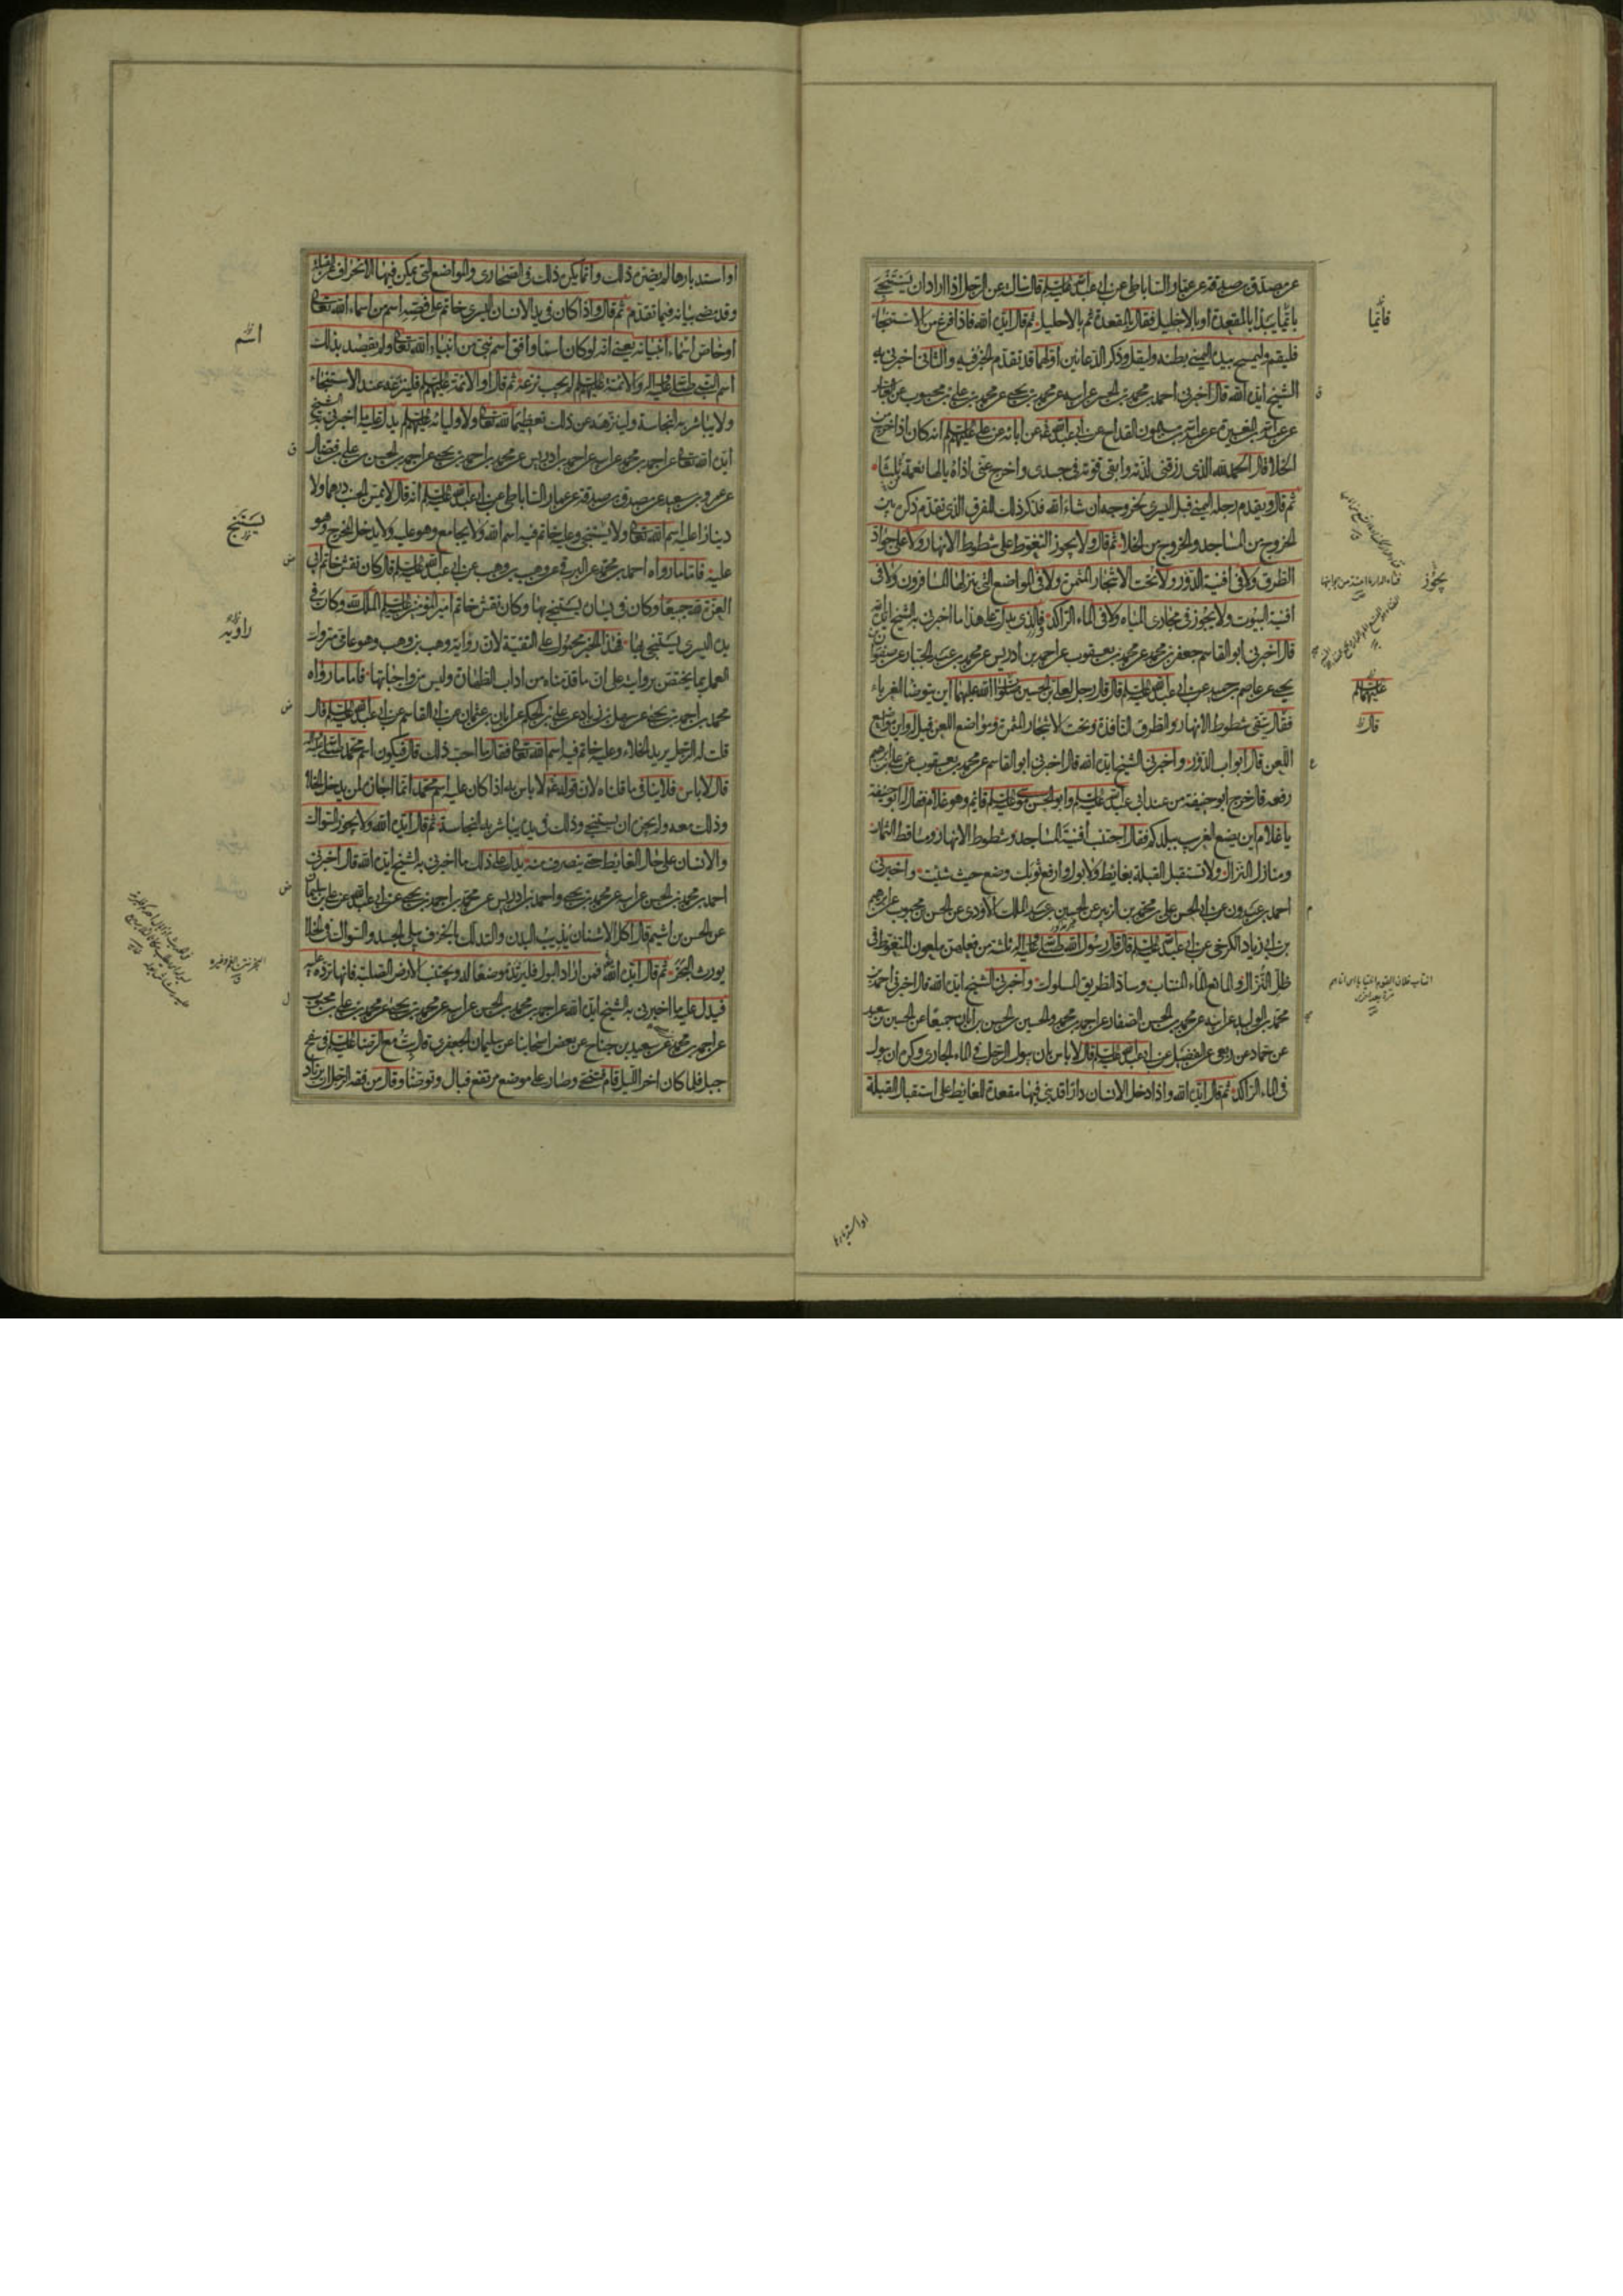 عن مصدق بن صدقة عن عمار الساباطي عن ابي عبد الله عليه السلم قال سالته عن الرجل اذا اراد ان يستنجي
بايما يبدا بالمقعدة او بالاحليل فقال بالمقعدة ثم بالاحليل ثم قال ايده الله فاذا فرغ من الاستنجاء
فليقم وليمسح بيده اليمنى بطنه وليقل وذكر الدعائين اولهما قد تقدم الخبر فيه والثاني اخبرني به
الشيخ ايده الله قال اخبرني احمد بن محمد بن الحسن عن ابيه عن محمد بن يحيى عن محمد بن علي بن محبوب عن
عن عبد الله بن المغيرة عن عبد الله بن ميمون القداح عن ابي عبد الله عن ابائه عن علي عليهم السلم انه كان اذا خرج من
الخلا قال الحمد لله الذي رزقني لذته وابقى قوته في جسدي واخرج عني اذاه يالها نعمة ثلثا
ثم قال ويقدم رجله اليمنى قبل اليسرى لخروجه ان شاء الله فذكر ذلك للفرق الذي تقدم ذكره بين
الخروج من المساجد والخروج من الخلا ثم قال ولا يجوز التغوط على شطوط الانهار ولا على جواد
الطرق ولا في افنية الدور ولا تحت الاشجار المثمرة ولا في المواضع التي ينزلها المسافرون ولا في
افنية البيوت ولا يجوز في مجاري المياه ولا في الماء الراكد فالذي يدل على هذا ما اخبرني به الشيخ ايده الله
قال اخبرني ابو القاسم جعفر بن محمد عن محمد بن يعقوب عن احمد بن ادريس عن محمد بن عبد الجبار عن صفوان بن
يحيى عن عاصم بن حميد عن ابي عبد الله عليه السلم قال قال رجل لعلي بن الحسين صلوات الله عليهما اين يتوضا الغرباء
فقال يتقي شطوط الانهار والطرق النافذة وتحت الاشجار المثمرة ومواضع اللعن قيل له واين مواضع
اللعن قال ابواب الدور واخبرني الشيخ ايده الله قال اخبرني ابو القاسم عن محمد بن يعقوب عن علي بن ابرهيم
رفعه قال خرج ابو حنيفة من عند ابي عبد الله عليه السلم وابو الحسن موسى عليه السلم قائم وهو غلام فقال له ابو حنيفة
يا غلام اين يضع الغريب ببلدكم فقال اجتنب افنية المساجد وشطوط الانهار ومساقط الثمار
ومنازل النزال ولا تستقبل القبلة بغايط ولا بول وارفع ثوبك وضع حيث شئت واخبرني
احمد بن عبدون عن ابي الحسن علي بن محمد بن الزبير عن الحسين بن عبد الملك الاودي عن الحسن بن محبوب عن ابرهيم
بن ابي زياد الكرخي عن ابي عبد الله عليه السلم قال قال رسول الله صلى الله عليه واله ثلثة من فعلهن ملعون المتغوط في
ظل النزال والمانع الماء المنتاب وساد الطريق المسلوك واخبرني الشيخ ايده الله قال اخبرني احمد بن
محمد بن الوليد عن ابيه عن محمد بن الحسن الصفار عن احمد بن محمد والحسين بن الحسن بن ابان جميعا عن الحسين بن سعيد
عن حماد عن ربعي عن الفضيل عن ابي عبد الله عليه السلم قال لا باس بان يبول الرجل في الماء الجاري وكره ان يبول
في الماء الراكد ثم قال ايده الله واذا دخل الانسان دارا قد بني فيها مقعدة للغايط على استقبال القبلة
فائما
يجوز
عليهما السلم
قال
او استدبارها
او استدبارها لم يضره ذلك وانما يكره ذلك في الصحاري والمواضع التي يمكن فيها الانحراف عن القبلة
وقد مضى بيانه فيما تقدم ثم قال واذا كان في يد الانسان اليسرى خاتم على فصه اسم من اسماء الله تعالى
او خاص اسماء انبيائه يعني انه لو كان اسما وافق اسم نبي من انبياء الله تعالى ولم يقصد بذلك
اسم النبي صلى الله عليه واله والائمة عليهم السلم لم يجب نزعه ثم قال او الائمة عليهم السلم فلينزعه عند الاستنجاء
ولا يباشر به النجاسة ولينزهه عن ذلك تعظيما لله تعالى ولاوليائه عليهم السلم يدل عليه ما اخبرني به الشيخ
ايده الله تعالى عن احمد بن محمد عن ابيه عن احمد بن ادريس عن محمد بن احمد بن يحيى عن احمد بن الحسن بن علي بن فضال
عن عمرو بن سعيد عن مصدق بن صدقة عن عمار الساباطي عن ابي عبد الله عليه السلم انه قال لا يمس الجنب درهما ولا
دينارا عليه اسم الله تعالى ولا يستنجي وعليه خاتم فيه اسم الله ولا يجامع وهو عليه ولا يدخل المخرج وهو
عليه فاما ما رواه احمد بن محمد عن البرقي عن وهب بن وهب عن ابي عبد الله عليه السلم قال كان نقش خاتم ابي
العزة لله جميعا وكان في يساره يستنجي بها وكان نقش خاتم امير المؤمنين عليه السلم الملك لله وكان في
يده اليسرى يستنجي بها فهذا الخبر محمول على التقية لان رواية وهب بن وهب وهو عامي متروك
العمل بما يختص بروايته على ان ما قدمناه من اداب الطهارة وليس من واجباتها فاما ما رواه
محمد بن احمد بن يحيى عن سهل بن زياد عن علي بن الحكم عن ابان بن عثمان عن ابي القاسم عن ابي عبد الله عليه السلم قال
قلت له الرجل يريد الخلاء وعليه خاتم فيه اسم الله تعالى فقال ما احب ذلك قال فيكون اسم محمد صلى الله عليه واله
قال لا باس فلا ينافي ما قلناه لان قوله لا باس به اذا كان عليه اسم محمد انما اجازه لمن يدخل الخلا
وذلك معه ولم يجز ان يستنجي وذلك في يده يباشر به النجاسة ثم قال ايده الله ولا يجوز السواك
والانسان على حال الغايط حتى ينصرف منه يدل على ذلك ما اخبرني به الشيخ ايده الله قال اخبرني
احمد بن محمد بن الحسن عن ابيه عن محمد بن يحيى واحمد بن ادريس عن محمد بن احمد بن يحيى عن ابي عبد الله عن علي بن سليمان
عن الحسن بن اشيم قال اكل الاشنان يذيب البدن والتدلك بالخزف يبلي الجسد والسواك في الخلا
يورث البخر ثم قال ايده الله فمن اراد البول فليرتد موضعا له ويجتنب الارض الصلبة فانها ترده عليه
فيدل عليه ما اخبرني به الشيخ ايده الله عن احمد بن محمد بن الحسن عن ابيه عن محمد بن يحيى عن محمد بن علي بن محبوب
عن احمد بن محمد عن سعيد بن جناح عن بعض اصحابنا عن سليمان الجعفري قال بت مع الرضا عليه السلم في سفح
جبل فلما كان اخر الليل قام فتنحى وصار على موضع مرتفع فبال وتوضا وقال من فقه الرجل ان يرتاد
اسم
يستنج
راويه